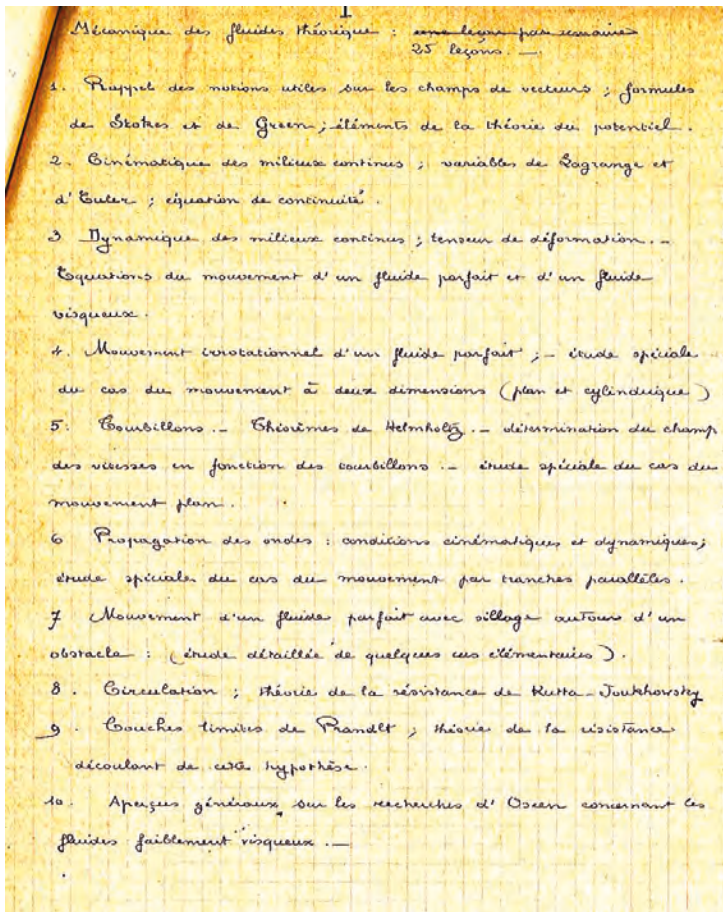 I
Mécanique des fluides théorique : une leçon par semaine
25 leçons. —.
1. Rappel des notions utiles sur les champs de vecteurs ; formules
de Stokes et de Green ; éléments de la théorie du potentiel.
2. Cinématique des milieux continus ; variables de Lagrange et
d'Euler ; équation de continuité.
3 Dynamique des milieux continus ; tenseur de déformation. –
Equations du mouvement d'un fluide parfait et d'un fluide
visqueux.
4. Mouvement irrotationnel d'un fluide parfait ; – étude spéciale
du cas du mouvement à deux dimensions (plan et cylindrique)
5: Tourbillons. – Théorèmes de Helmholtz. – détermination du champ
des vitesses en fonction des tourbillons. – étude spéciale du cas du
mouvement plan.
6 Propagation des ondes : conditions cinématiques et dynamiques ;
étude spéciale du cas du mouvement par tranches parallèles.
7 Mouvement d'un fluide parfait avec sillage autour d'un
obstacle : (étude détaillée de quelques cas élémentaires).
8. Circulation ; théorie de la résistance de Kutta-Joukhowsky
9. Couches limites de Prandlt ; théorie de la résistance
découlant de cette hypothèse.
10. Aperçus généraux sur les recherches d'Oseen concernant les
fluides faiblement visqueux. —